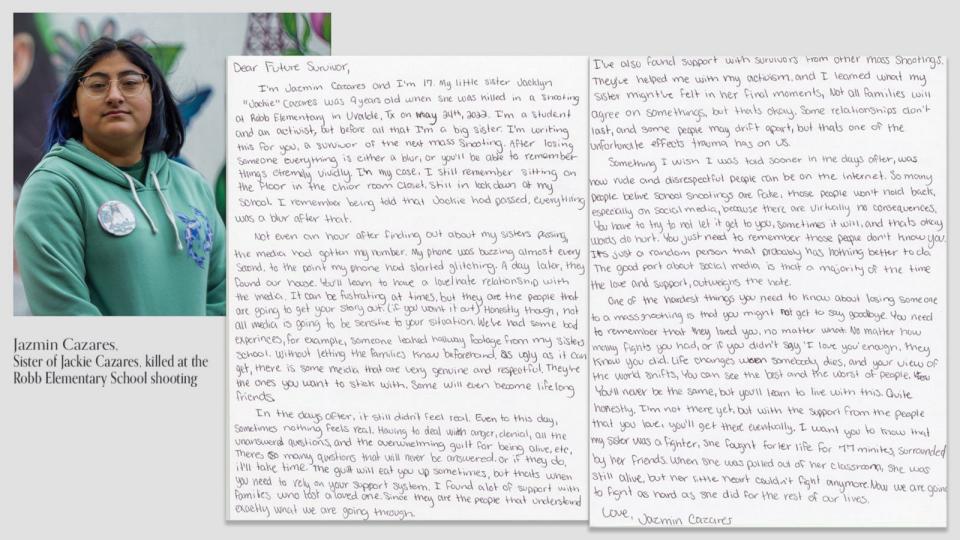 Jazmin Cazares,
Sister of Jackie Cazares, killed at the
Robb Elementary School shooting
Dear Future Survivor,
I'm Jazmin Cazares and I'm 17. My little sister Jacklyn
"Jackie" Cazares was 9 years old when she was killed in a shooting
at Robb Elementary in Uvalde, Tx on May 24th, 2022. I'm a student
and an activist, but before all that I'm a big sister. I'm writing
this for you, a survivor of the next mass shooting. After losing
someone everything is either a blur, or you'll be able to remember
things etremly vividly. In my case, I still remember sitting on
the floor in the chior room closet, still in lockdown at my
school. I remember being told that Jackie had passed, everything
was a blur after that.
Not even an hour after finding out about my sisters passing,
the media had gotten my number. My phone was buzzing almost every
second, to the point my phone had started glitching. A day later, they
found our house. You'll learn to have a love/hate relationship with
the media. It can be fustrating at times, but they are the people that
are going to get your story out. (if you want it out) Honestly though, not
all media is going to be sensitive to your situation. We've had some bad
experinces, for example, someone leaked hallway footage from my sisters
school, without letting the families know beforehand. as ugly as it can
get, there is some media that are very genuine and respectful. They're
the ones you want to stick with. Some will even become lifelong
friends.
In the days after, it still didn't feel real. Even to this day,
sometimes nothing feels real. Having to deal with anger, denial, all the
unanswerd questions, and the overwhelming guilt for being alive, etc.
Theres so many questions that will never be answered, or if they do,
it'll take time. The guilt will eat you up sometimes, but thats when
you need to rely on your support system. I found a lot of support with
families who lost a loved one. Since they are the people that understand
exactly what we are going through.
I've also found support with survivors from other mass shootings.
They've helped me with my activism, and I learned what my
sister might've felt in her final moments, Not all families will
agree on somethings, but thats okay. Some relationships don't
last, and some people may drift apart, but thats one of the
unfortunate effects trauma has on us.
Something I wish I was told sooner in the days after, was
how rude and disrespectful people can be on the internet. So many
people belive school shootings are fake, those people won't hold back,
especially on social media, because there are virtually no consequences.
You have to try to not let it get to you, sometimes it will, and thats okay
words do hurt. You just need to remember those people don't know you.
It's just a random person that probably has nothing better to do
The good part about social media, is that a majority of the time
the love and support, outweighs the hate.
One of the hardest things you need to know about losing someone
to a mass shooting is that you might not get to say goodbye. You need
to remember that they loved you, no matter what. No matter how
many fights you had, or if you didn't say 'I love you' enough, they
know you did. Life changes when somebody dies, and your view of
the world shifts, You can see the best and the worst of people.
You'll never be the same, but you'll learn to live with this. Quite
honestly, I'm not there yet, but with the support from the people
that you love, you'll get there eventually. I want you to know that
my sister was a fighter, she fought for her life for 77 minites, surrounded
by her friends. When she was pulled out of her classroom, she was
still alive, but her little heart couldn't fight anymore. Now we are going
to fight as hard as she did for the rest of our lives.
Love, Jazmin Cazares